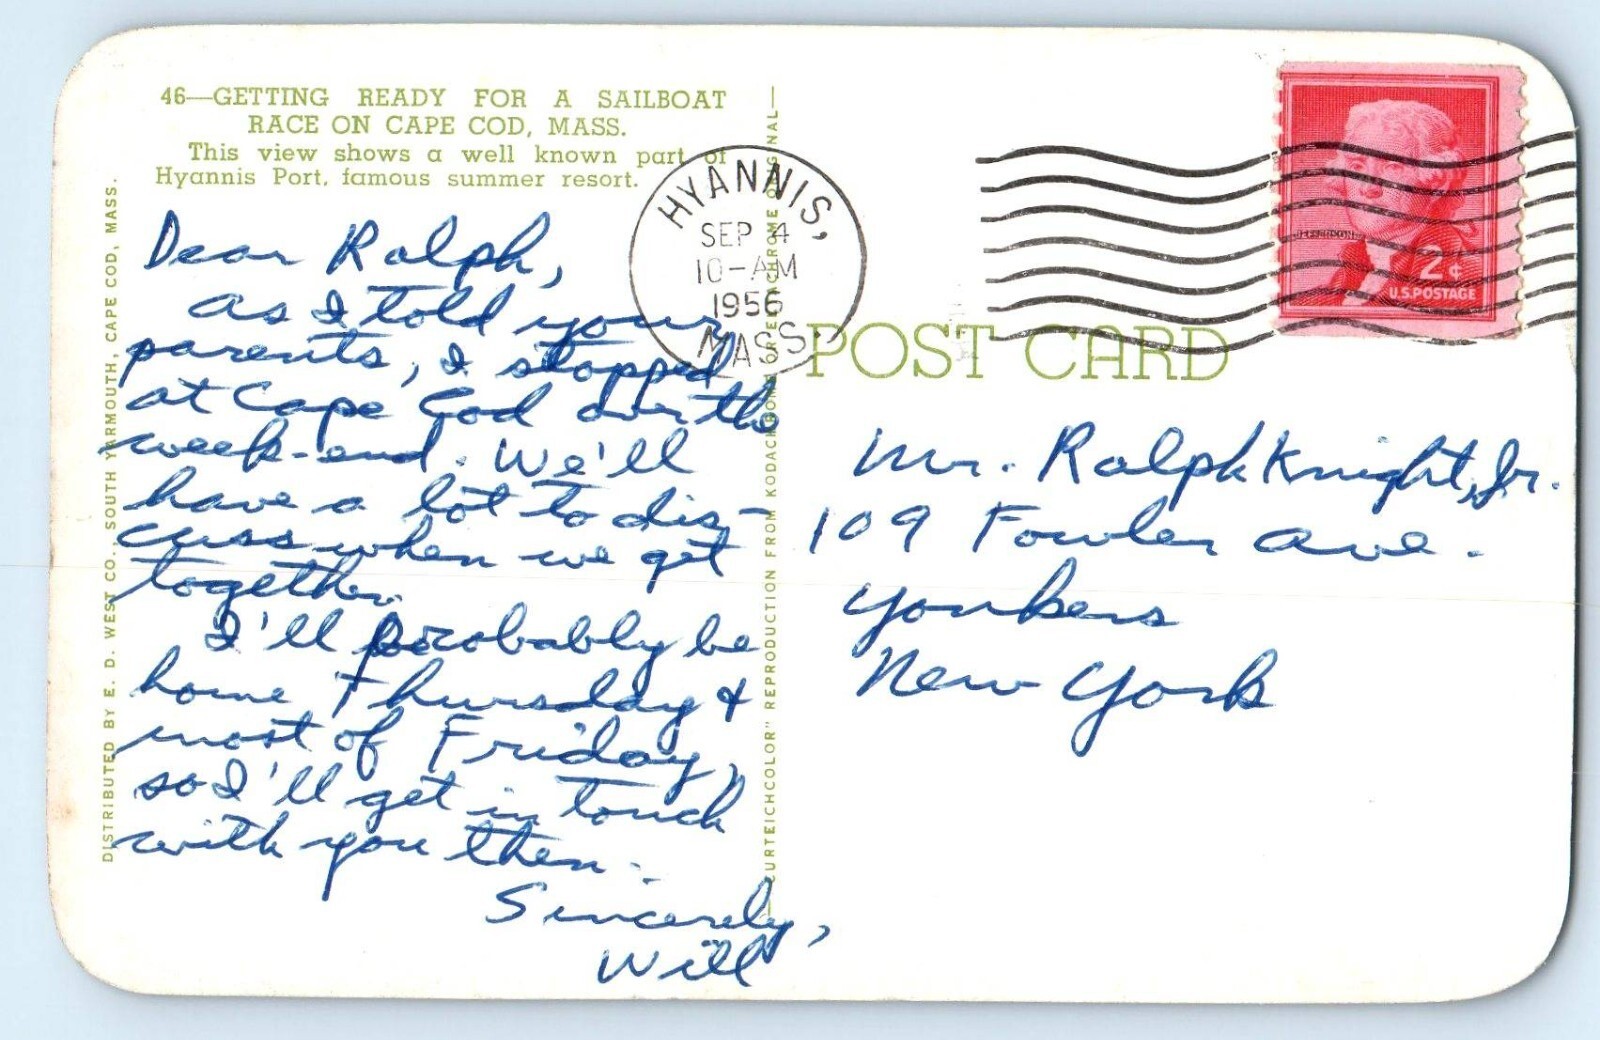 46—GETTING READY FOR A SAILBOAT
RACE ON CAPE COD, MASS.
This view shows a well known part of
Hyannis Port, famous summer resort.
Dear Ralph,
As I told your
parents, I stopped
at Cape Cod over the
week-end. We'll
have a lot to dis-
cuss when we get
together.
I'll probably be
home Thursday &
most of Friday,
so I'll get in touch
with you then.
Sincerely,
Will
DISTRIBUTED BY E. D. WEST CO., SOUTH YARMOUTH, CAPE COD, MASS.
CURTEICHCOLOR" REPRODUCTION FROM KODACHROME OR EKTACHROME ORIGINAL—
HYANNIS,
SEP 4
10-AM
1956
MASS.
JEFFERSON
2¢
U.S.POSTAGE
POST CARD
Mr. Ralph Knight, Jr.
109 Fowler Ave.
Yonkers
New York